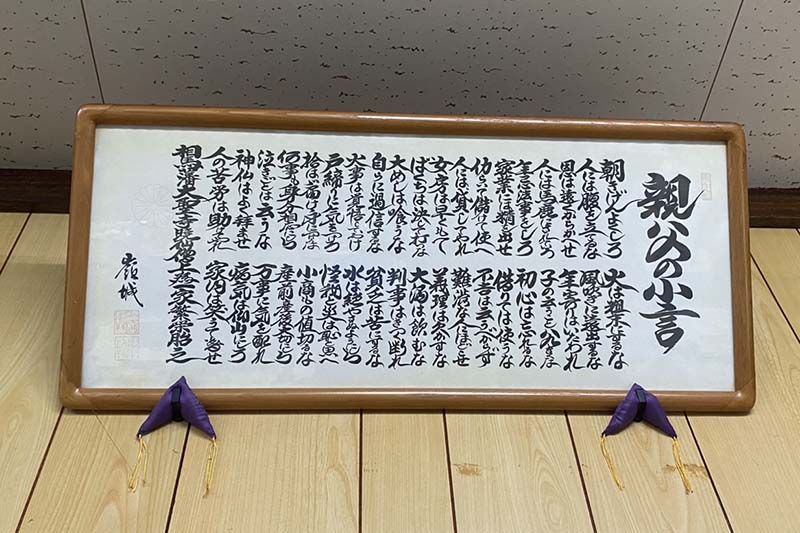 親父の小言
朝きげんよくしろ
火は粗末にするな
人には腹を立てるな
風吹きに遠出するな
恩は遠くからかへせ
年寄りはいたわれ
人には馬鹿にされろ
子の言うこと八九はきくな
年忌法事をしろ
初心は忘れるな
家業には精を出せ
借りては使うな
仂いて儲けて使へ
不吉は云うべからず
人には貸してやれ
難渋な人にほどこせ
女房は早くもて
義理は欠かすな
ばくちは決て打な
大酒は飲むな
大めしは喰うな
判事はきつく断れ
自らに過信するな
貧乏は苦にするな
火事は覚悟しておけ
水は絶やさぬようにしろ
戸締に気をつけろ
怪我と災は恥と思へ
拾はば届け身につけるな
小商ものを値切るな
何事も身分相応にしろ
産前産後は大切にしろ
泣きごとは云うな
万事に気を配れ
神仏はよく拝ませ
病気は仰山にしろ
人の苦労は助けてやれ
家内は笑ふて暮せ